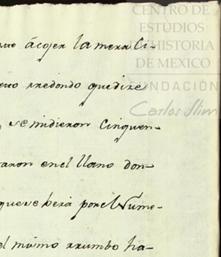 CENTRO DE
ESTUDIOS
DE HISTORIA
DE MEXICO
FUNDACIÓN
Carlos Slim
acojer la mera Ci-
rredondo que dire
se midieron Cinquen-
taron en el Llano don-
que se berá por el Nume-
el mismo rrumbo ha-